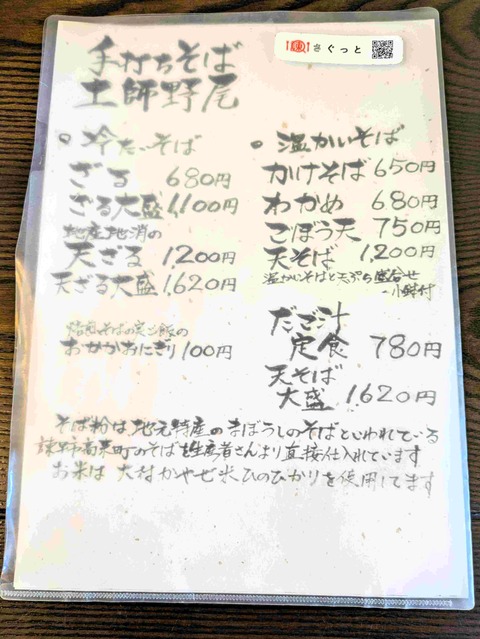 さぐっと
手打ちそば
土師野尾
冷たいそば
ざる 680円
ざる大盛 1,100円
地産地消の
天ざる 1,200円
天ざる大盛 1,620円
そばの実ご飯の
おかかおにぎり 100円
温かいそば
かけそば 650円
わかめ 680円
ごぼう天 750円
天そば 1,200円
温かいそばと天ぷら盛合せ
小鉢付
だご汁
定食 780円
天そば
大盛 1620円
そば粉は地元特産のまぼろしのそばといわれている
諫早市高来町のそばを生産者さんより直接仕入れています
お米は 大村かやぜ米ひのひかりを使用してます